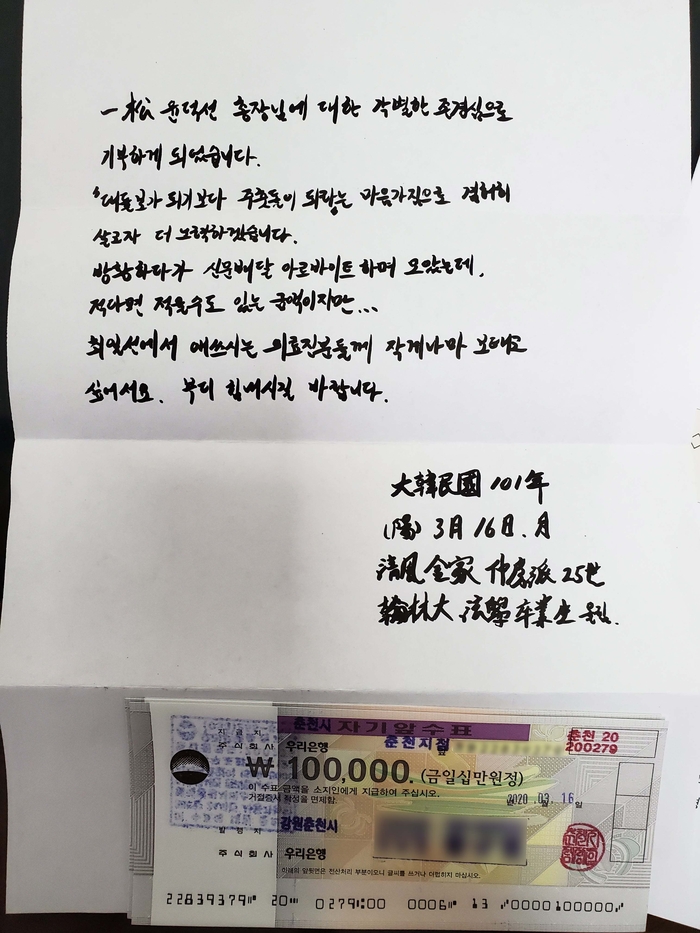 一松 윤덕선 총장님에 대한 각별한 존경심으로
기부하게 되었습니다.
'대들보가 되기보다 주춧돌이 되라'는 마음가짐으로 겸허히
살고자 더 노력하겠습니다.
방황하다가 신문배달 아르바이트하며 모았는데,
적다면 적을수도 있는 금액이지만...
최일선에서 애쓰시는 의료진분들께 작게나마 보태고
싶어서요. 부디 힘내시길 바랍니다.
大韓民國 101年
(陽) 3月 16日. 月
淸風 金家 仲房派 25世
翰林大 法學 卒業生 올림.
춘천시 자기앞수표
지급지
주식회사 우리은행 춘천지점
춘천 20
200279
₩ 100,000. (금일십만원정)
이 수표 금액을 소지인에게 지급하여 주십시오.
거절증서 작성을 면제함.
2020 . 03 . 16 일
발행지 강원춘천시
주식회사 우리은행
이래의 앞뒷면은 전산처리 부분이오니 글씨를 쓰거나 더럽히지 마십시오.
22839379⑈ 20⑉ 0279⑆00 0006⑈ 13 ⑈0000100000⑈